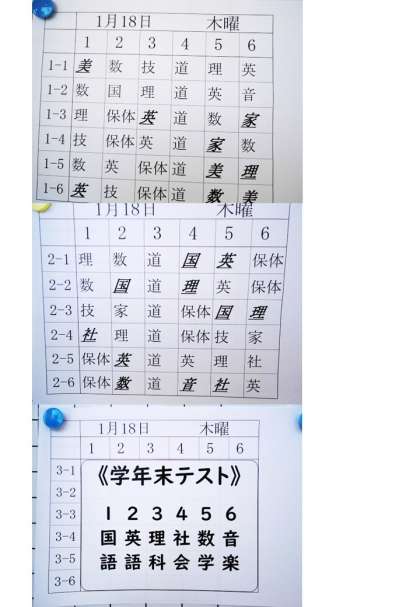 1月18日 木曜
1 2 3 4 5 6
1-1 美 数 技 道 理 英
1-2 数 国 理 道 英 音
1-3 理 保体 英 道 数 家
1-4 技 保体 英 道 家 数
1-5 数 英 保体 道 美 理
1-6 英 技 保体 道 数 美
1月18日 木曜
1 2 3 4 5 6
2-1 理 数 道 国 英 保体
2-2 数 国 道 理 英 保体
2-3 技 家 道 保体 国 理
2-4 社 理 道 保体 技 家
2-5 保体 英 道 英 理 社
2-6 保体 数 道 音 社 英
1月18日 木曜
1 2 3 4 5 6
3-1
3-2
3-3
3-4
3-5
3-6
《学年末テスト》
1 2 3 4 5 6
国 英 理 社 数 音
語 語 科 会 学 楽